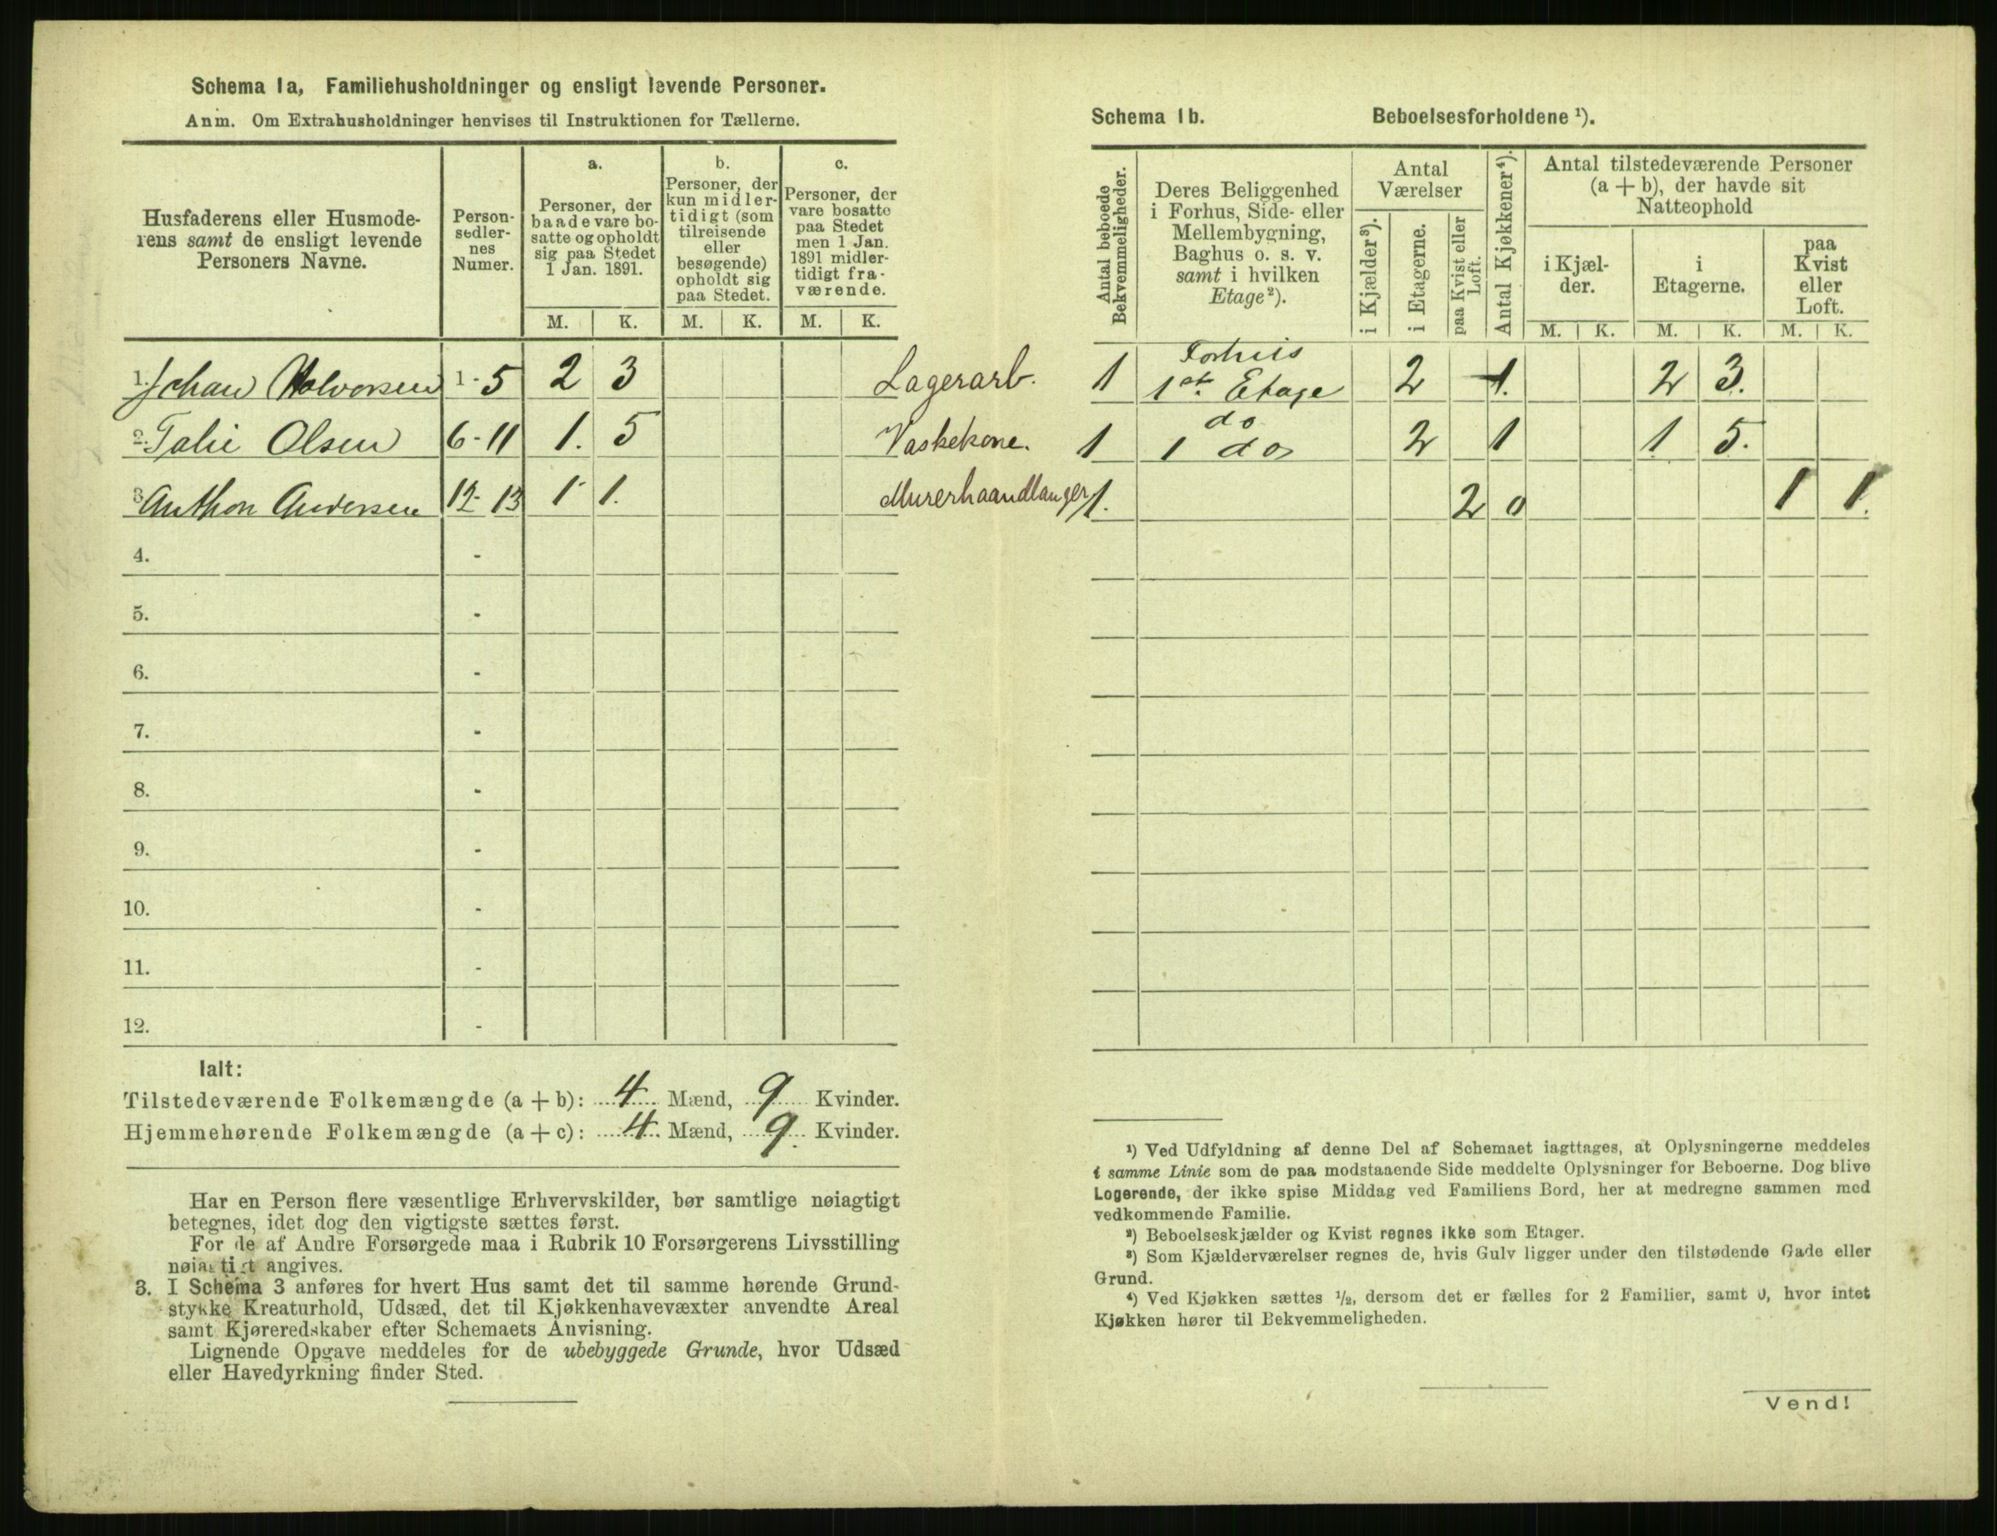 Schema 1a, Familiehusholdninger og ensligt levende Personer.
Anm. Om Extrahusholdninger henvises til Instruktionen for Tællerne.
Husfaderens eller Husmoderens samt de ensligt levende Personers Navne.
Personsedlernes Numer.
a.
Personer, der baade vare bosatte og opholdt sig paa Stedet 1 Jan. 1891.
b.
Personer, der kun midlertidigt (som tilreisende eller besøgende) opholdt sig paa Stedet.
c.
Personer, der vare bosatte paa Stedet men 1 Jan. 1891 midlertidigt fraværende.
M. K. M. K. M. K.
1. Johan Halvorsen 1-5 2 3 Lagerarb.
2. Talie Olsen 6-11 1. 5 Vaskekone.
3. Anthon Andersen 12-13 1 1. Murerhaandlanger
4. -
5. -
6. -
7. -
8. -
9. -
10. -
11. -
12. -
Ialt:
Tilstedeværende Folkemængde (a + b): 4 Mænd, 9 Kvinder.
Hjemmehørende Folkemængde (a + c): 4 Mænd, 9 Kvinder.
Har en Person flere væsentlige Erhvervskilder, bør samtlige nøiagtigt
betegnes, idet dog den vigtigste sættes først.
For de af Andre Forsørgede maa i Rubrik 10 Forsørgerens Livsstilling
nøiagtigt angives.
3. I Schema 3 anføres for hvert Hus samt det til samme hørende Grund-
stykke Kreaturhold, Udsæd, det til Kjøkkenhavevæxter anvendte Areal
samt Kjøreredskaber efter Schemaets Anvisning.
Lignende Opgave meddeles for de ubebyggede Grunde, hvor Udsæd
eller Havedyrkning finder Sted.
Schema 1b. Beboelsesforholdene ¹).
Antal beboede Bekvemmeligheder.
Deres Beliggenhed i Forhus, Side- eller Mellembygning, Baghus o. s. v. samt i hvilken Etage²).
Antal Værelser
i Kjælder³).
i Etagerne.
paa Kvist eller Loft.
Antal Kjøkkener⁴).
Antal tilstedeværende Personer (a + b), der havde sit Natteophold
i Kjælder.
i Etagerne.
paa Kvist eller Loft.
M. K. M. K. M. K.
1 Forhus 1st. Etage 2 1. 2 3.
1 do 1 do 2 1 1 5.
1. 2 0 1 1.
¹) Ved Udfyldning af denne Del af Schemaet iagttages, at Oplysningerne meddeles
i samme Linie som de paa modstaaende Side meddelte Oplysninger for Beboerne. Dog blive
Logerende, der ikke spise Middag ved Familiens Bord, her at medregne sammen med
vedkommende Familie.
²) Beboelseskjælder og Kvist regnes ikke som Etager.
³) Som Kjælderværelser regnes de, hvis Gulv ligger under den tilstødende Gade eller
Grund.
⁴) Ved Kjøkken sættes ½, dersom det er fælles for 2 Familier, samt 0, hvor intet
Kjøkken hører til Bekvemmeligheden.
Vend!